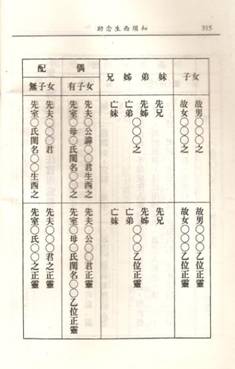 315
子女
故男○○○之
故女○○○之
故男○○○乙位正靈
故女○○○乙位正靈
兄姊弟妹
先兄
先姊
亡弟
亡妹
○○○之
先兄
先姊
亡弟
亡妹
○○○乙位正靈
配偶
有子女
先夫○公諱○○君生西之
先室○母○氏閨名○○之
先夫○公○○君正靈
先室○母○氏閨名○○乙位正靈
無子女
先夫○○○君
先室○氏閨名○○生西之
先夫○○○君之正靈
先室○氏○○之正靈